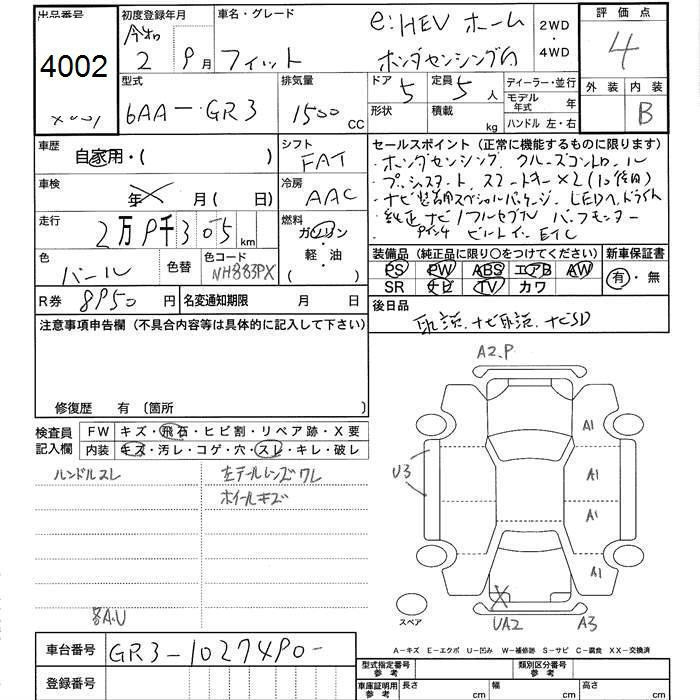 出品番号
4002
初度登録年月
令和
2 9月
車名・グレード
フィット
e:HEV ホーム
ホンダセンシング
2WD
・
4WD
評価点
4
外装 内装
B
型式
6AA-GR3
排気量
1500
CC
ドア
5
定員
5人
形状
積載
kg
ディーラー・並行
モデル年式 年
ハンドル 左・右
車歴
自家用・( )
シフト
FAT
車検
年 月( 日)
冷房
AAC
走行
2万9千305
km
燃料
ガソリン
・
軽・油
( )
色
パール
色替
色コード
NH883PX
R券 8950 円
名変通知期限 月 日
セールスポイント (正常に機能するものに限ります)
・ホンダセンシング クルーズコントロール
・プッシュスタート スマートキー×2
・ナビ装着用スペシャルパッケージ LEDヘッドライト
・純正ナビ/フルセグTV バックモニター
9インチ ビルトインETC
装備品 (純正品に限り○をつけてください)
PS PW ABS エアB AW
SR ナビ TV カワ
新車保証書
有・無
後日品
取説、ナビ取説、ナビSD
注意事項申告欄 (不具合内容等は具体的に記入して下さい)
修復歴 有 〔箇所 〕
検査員
記入欄
FW キズ・飛石・ヒビ割・リペア跡・X要
内装 キズ・汚レ・コゲ・穴・スレ・キレ・破レ
ハンドルスレ
左テールレンズワレ
ホイールキズ
各A.U
A2.P
A1
U3
A1
A1
A1
X
UA2
A3
スペア
A-キズ E-エクボ U-凹み W-補修跡 S-サビ C-腐食 XX-交換済
車台番号
GR3-1027490-
登録番号
型式指定番号
参考
類別区分番号
参考
車庫証明用
参考
長さ cm
幅 cm
高さ cm